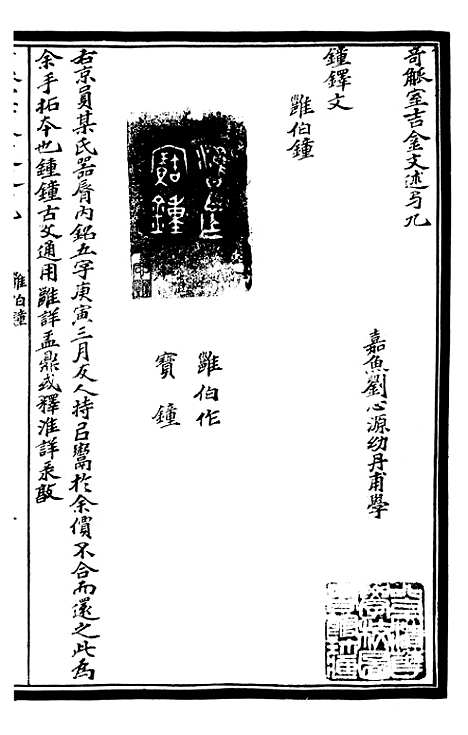 奇觚室吉金文述弓九
嘉魚劉心源幼丹甫學
鐘鐸文
雝伯鐘
雝伯作
寶鐘
右京員某氏器脣內銘五字庚寅三月友人持㠯鬻於余價不合而還之此為
余手拓本也鍾鐘古文通用雝詳盂鼎或釋淮詳彔𣪘
雝伯鐘